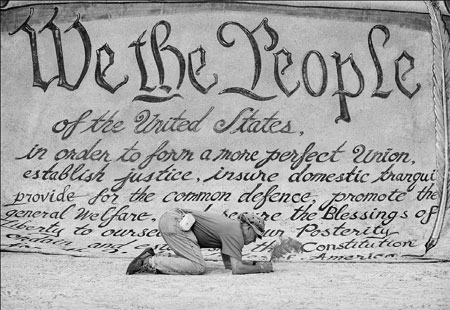 We the People
of the United States,
in order to form a more perfect Union,
establish justice, insure domestic tranqui
provide for the common defence, promote the
general Welfare, the Blessings of
liberty to ourse our Posterity
ordain and Constitution
America.